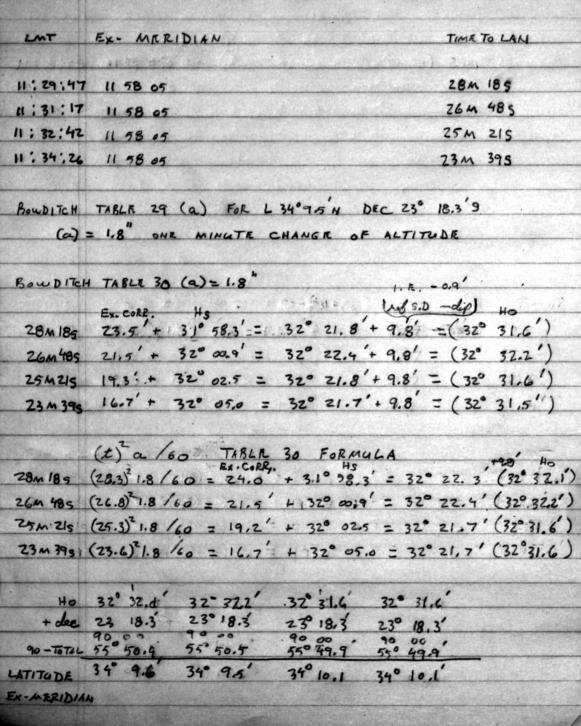 LMT EX- MERIDIAN TIME TO LAN
11:29:47 11 58 05 28M 18S
11:31:17 11 58 05 26M 48S
11:32:42 11 58 05 25M 21S
11:34:26 11 58 05 23M 39S
BOWDITCH TABLE 29 (a) FOR L 34°9.5'N DEC 23° 18.3'S
(a) = 1.8" ONE MINUTE CHANGE OF ALTITUDE
BOWDITCH TABLE 30 (a) = 1.8"
I.E. -0.9'
Ex. CORR. Hs S.D -dip Ho
28M 18S 23.5' + 31° 58.3' = 32° 21.8' + 9.8' = (32° 31.6')
26M 48S 21.5' + 32° 00.9' = 32° 22.4' + 9.8' = (32° 32.2')
25M 21S 19.3' + 32° 02.5 = 32° 21.8' + 9.8' = (32° 31.6')
23M 39S 16.7' + 32° 05.0 = 32° 21.7' + 9.8' = (32° 31.5')
(t)² a /60 TABLE 30 FORMULA
Ex. CORR. Hs Ho
28M 18S (28.3)² 1.8 /60 = 24.0 + 31° 58.3' = 32° 22.3' (32° 32.1')
26M 48S (26.8)² 1.8 /60 = 21.5' + 32° 00.9' = 32° 22.4' (32° 32.2')
25M 21S (25.3)² 1.8 /60 = 19.2' + 32° 02.5 = 32° 21.7' (32° 31.6')
23M 39S (23.6)² 1.8 /60 = 16.7' + 32° 05.0 = 32° 21.7' (32° 31.6)
Ho 32° 32.1' 32° 32.2' 32° 31.6' 32° 31.6'
+ dec 23 18.3' 23° 18.3' 23° 18.3' 23° 18.3'
90 00 90 00 90 00 90 00
90-TOTAL 55° 50.4 55° 50.5 55° 49.9 55° 49.9'
LATITUDE 34° 9.6' 34° 9.5' 34° 10.1 34° 10.1'
EX-MERIDIAN